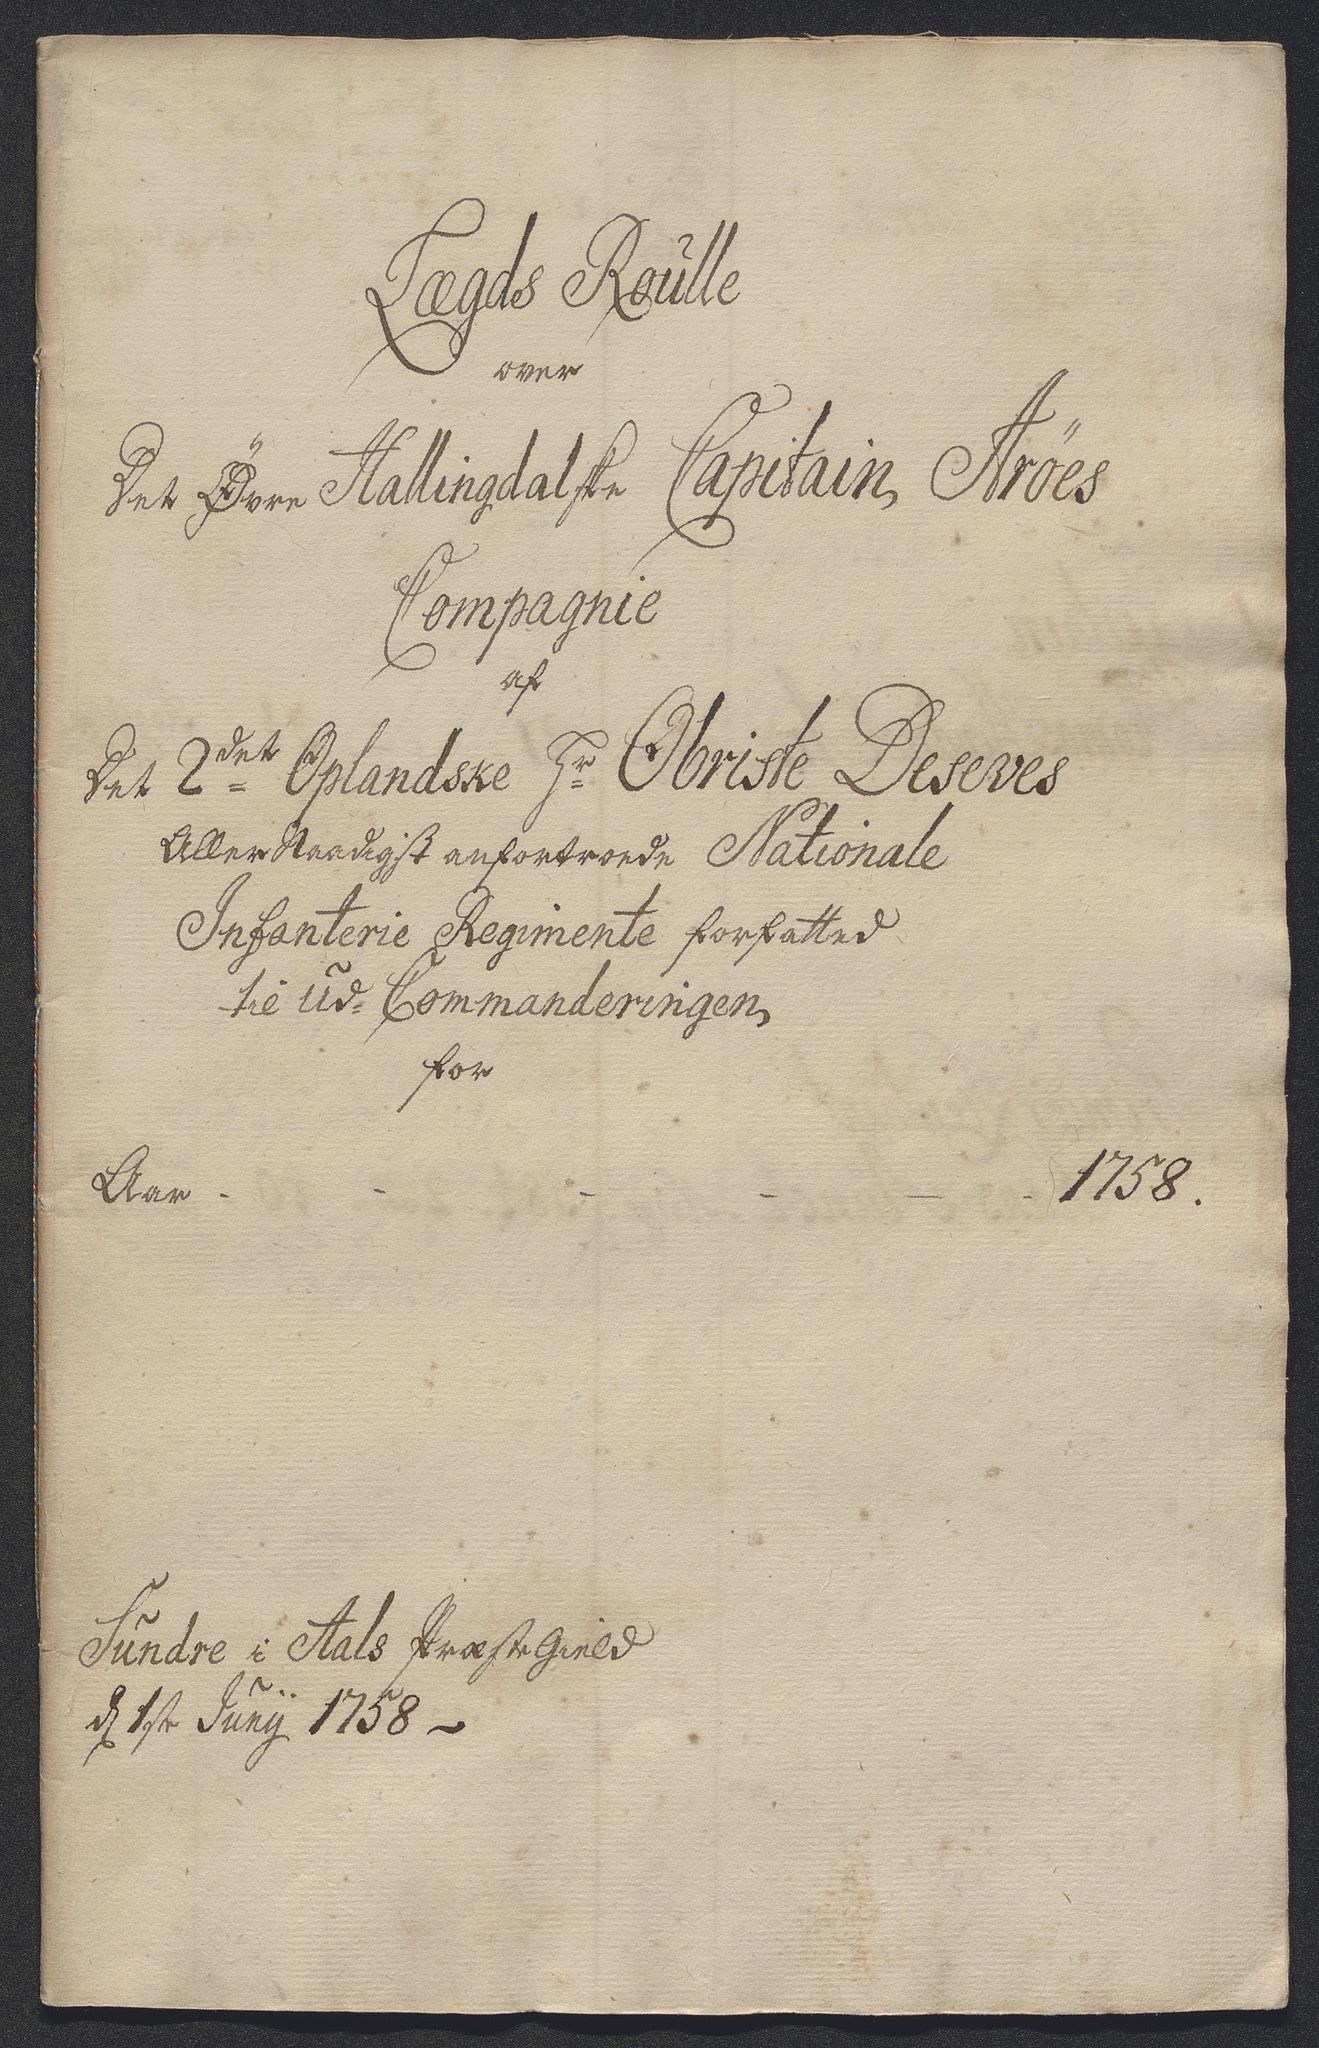 Lægds Roulle
over
Det Øvre Hallingdalske Capitain Aröes
Compagnie
af
Det 2det Oplandske Hr Obriste Deseves
Aller Naadigst anfortroede Nationale
Infanterie Regimente forfatted
til Ud- Commanderingen,
for
Aar - - - - - - 1758.
Sundre i Aals Præste Gield
d 1ste Junij 1758 -